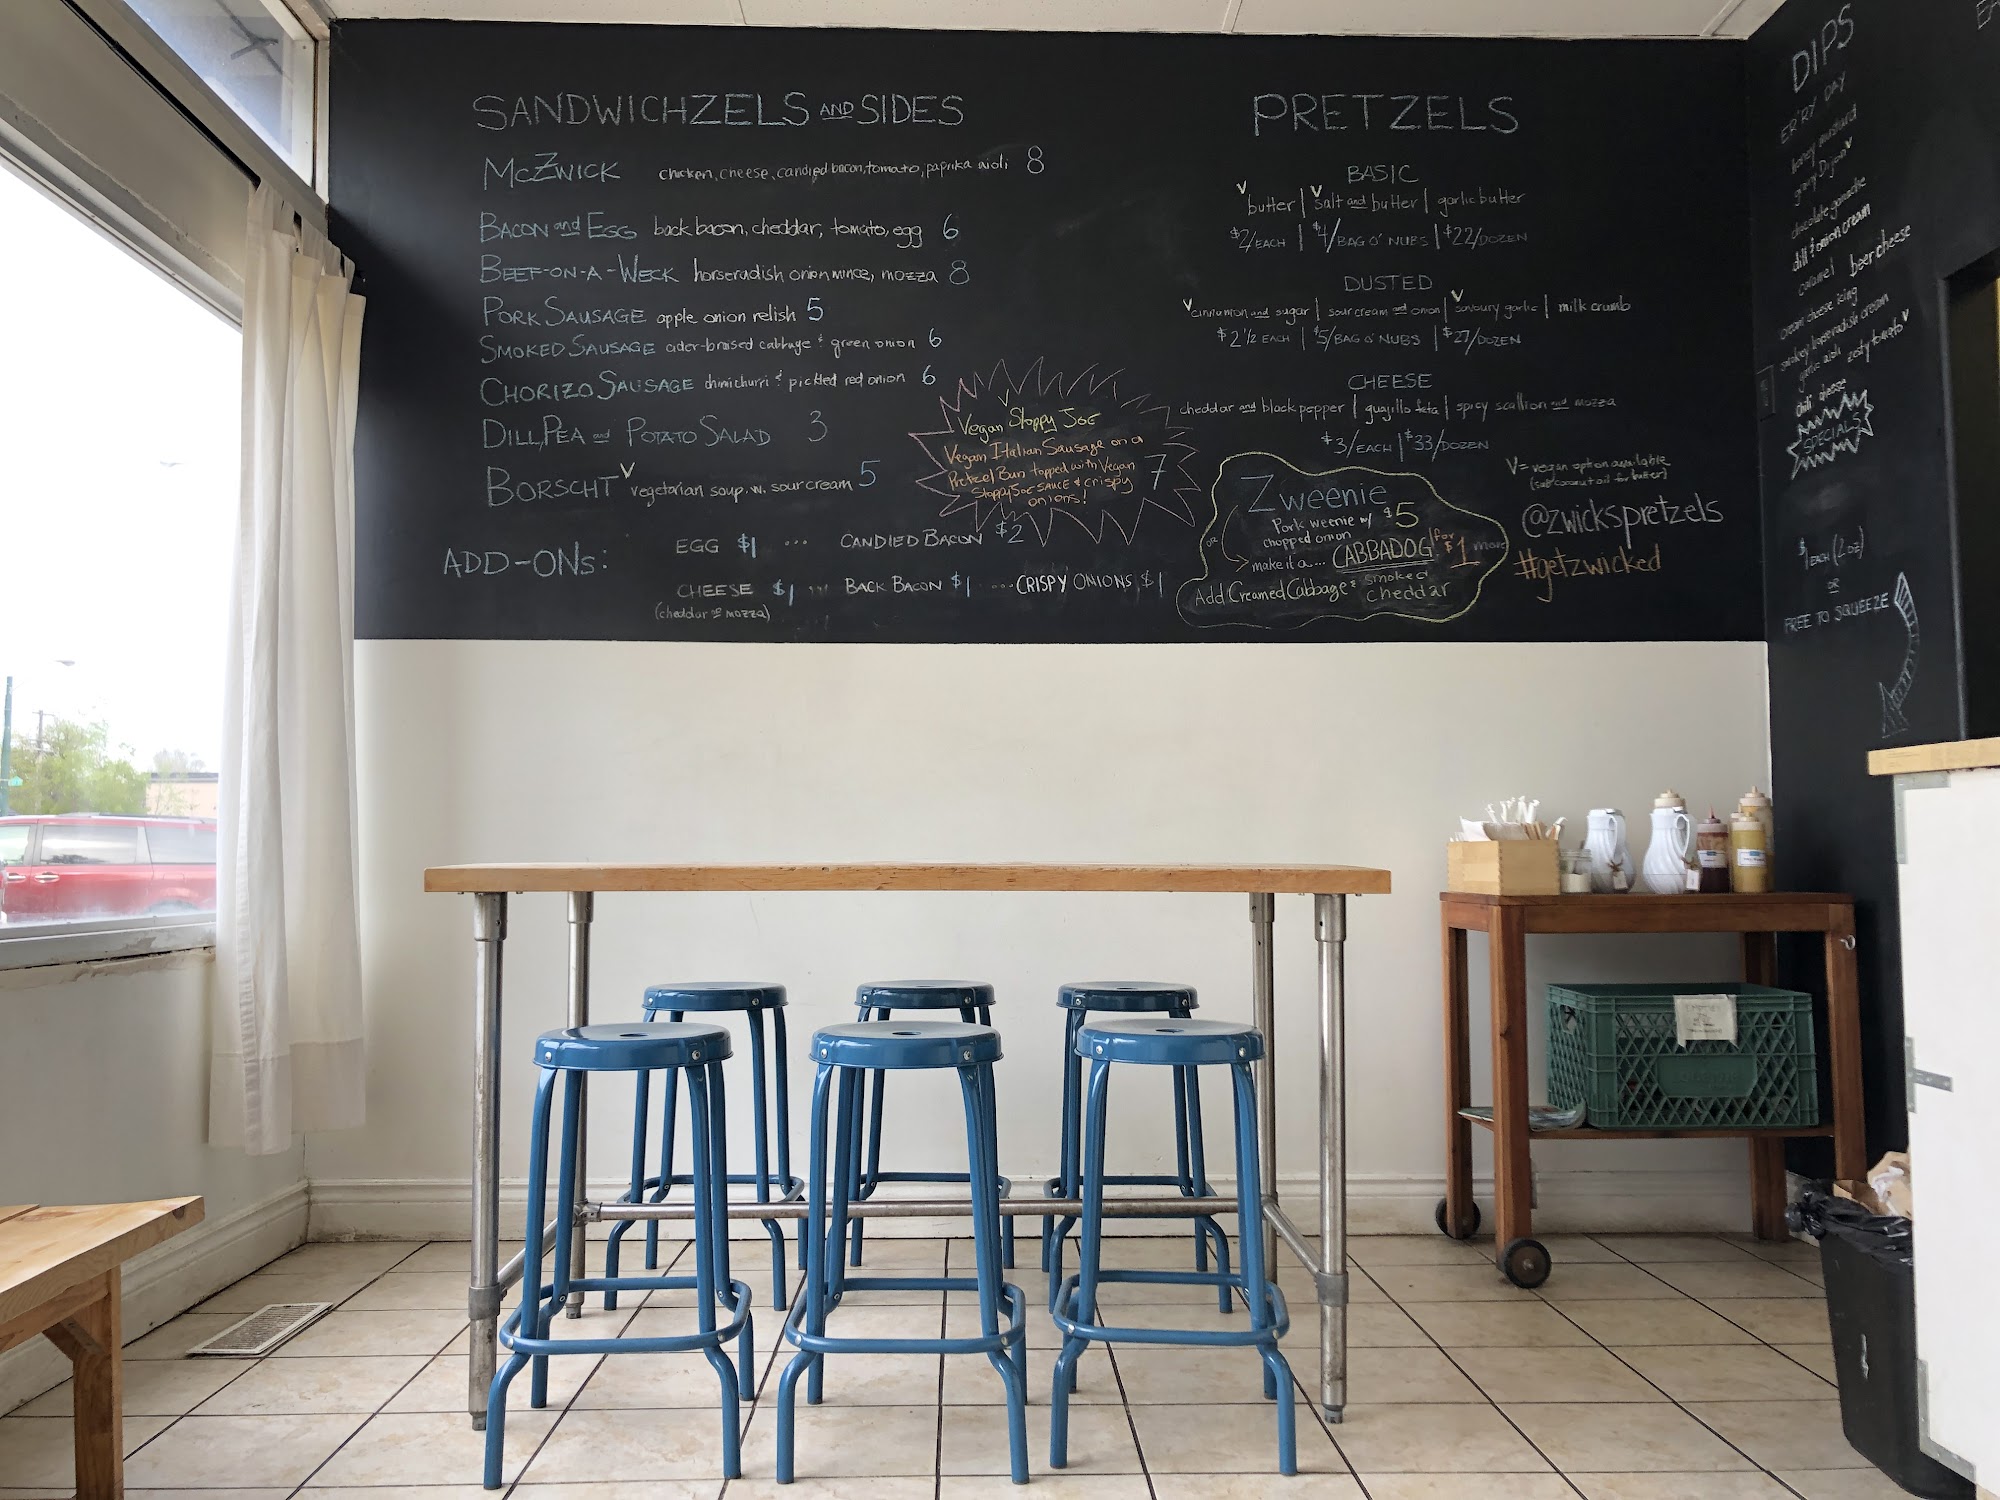 SANDWICHZELS AND SIDES
McZWICK chicken, cheese, candied bacon, tomato, paprika aioli 8
BACON and EGG back bacon, cheddar, tomato, egg 6
BEEF-ON-A-WECK horseradish onion mince, mozza 8
PORK SAUSAGE apple onion relish 5
SMOKED SAUSAGE cider-braised cabbage & green onion 6
CHORIZO SAUSAGE chimichurri & pickled red onion 6
DILL, PEA and POTATO SALAD 3
BORSCHT V vegetarian soup. w. sour cream 5
ADD-ONs:
EGG $1 ... CANDIED BACON $2
CHEESE $1 ... BACK BACON $1 ... CRISPY ONIONS $1
(cheddar or mozza)
V
Vegan Sloppy JOE
Vegan Italian Sausage on a
Pretzel Bun topped with Vegan
Sloppy Joe SAUCE & crispy
onions!
7
PRETZELS
BASIC
V butter | V salt and butter | garlic butter
$2/EACH | $4/BAG O' NUBS | $22/DOZEN
DUSTED
V cinnamon and sugar | sour cream and onion | V savoury garlic | milk crumb
$2 1/2 EACH | $5/BAG O' NUBS | $27/DOZEN
CHEESE
cheddar and black pepper | guajillo feta | spicy scallion and mozza
$3/EACH | $33/DOZEN
V = vegan option available
(sub coconut oil for butter)
@zwickspretzels
#getzwicked
Zweenie
Pork weenie w/ $5
chopped onion
or
make it a... CABBADOG! for $1 more
Add Creamed Cabbage & smoked
cheddar
DIPS
ER'RY DAY
honey mustard
grainy Dijon V
chocolate ganache
dill & onion cream
caramel beer cheese
cream cheese icing
smokey horseradish cream
garlic aioli zesty tomato V
chili cheese
SPECIALS
$1 EACH (2 OZ)
OR
FREE TO SQUEEZE